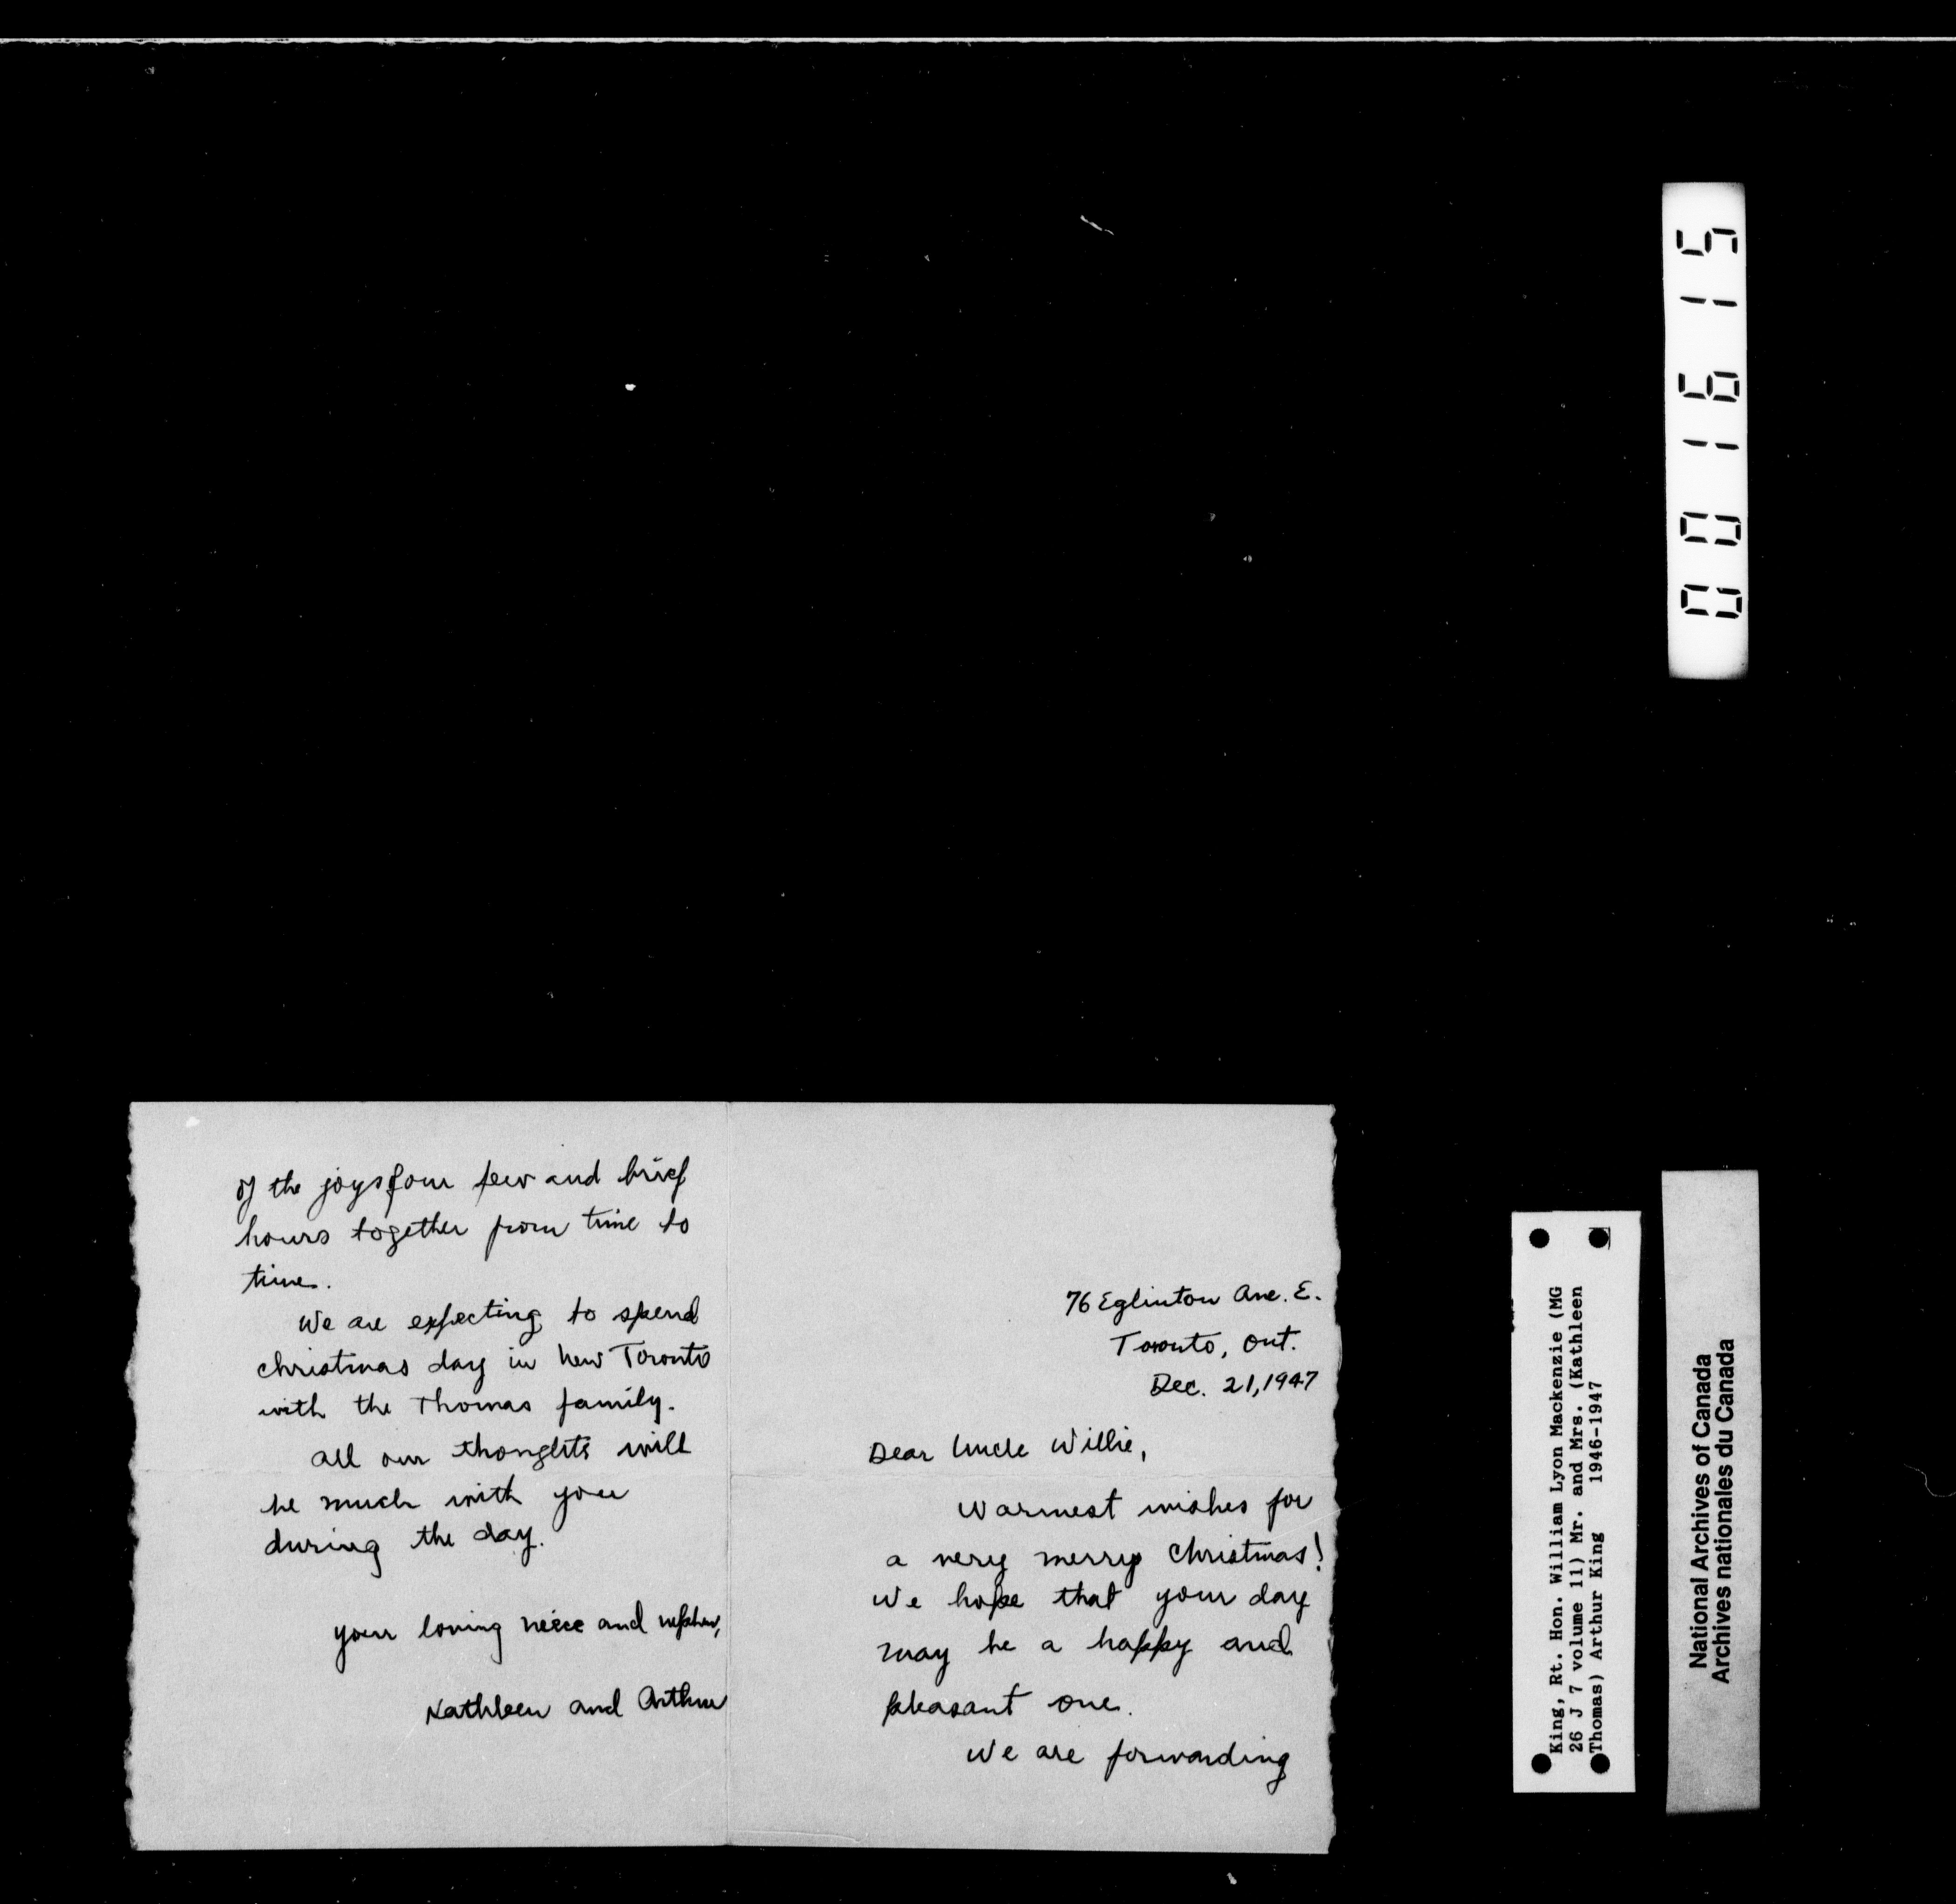 76 Eglinton Ave. E.
Toronto, Ont.
Dec. 21, 1947
Dear Uncle Willie,
Warmest wishes for
a very merry Christmas!
We hope that your day
may be a happy and
pleasant one.
We are forwarding
of the joys of our few and brief
hours together from time to
time.
We are expecting to spend
Christmas day in New Toronto
with the Thomas family.
All our thoughts will
be much with you
during the day.
Your loving neice and nephew,
Kathleen and Arthur
001615
King, Rt. Hon. William Lyon Mackenzie (MG
26 J 7 volume 11) Mr. and Mrs. (Kathleen
Thomas) Arthur King 1946-1947
National Archives of Canada
Archives nationales du Canada